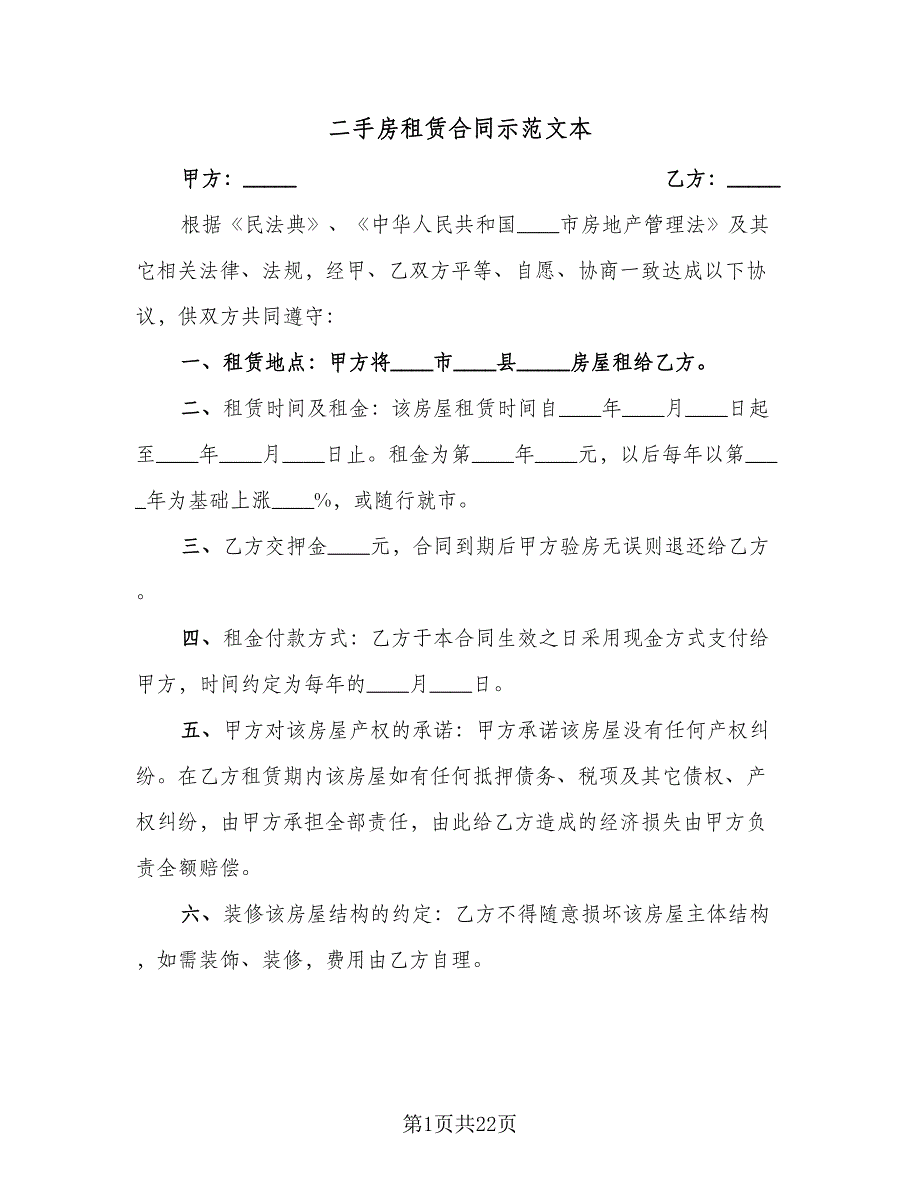 二手房租赁合同示范文本
甲方：_____ 乙方：_____
根据《民法典》、《中华人民共和国____市房地产管理法》及其
它相关法律、法规，经甲、乙双方平等、自愿、协商一致达成以下协
议，供双方共同遵守：
一、租赁地点：甲方将____市____县_____房屋租给乙方。
二、租赁时间及租金：该房屋租赁时间自____年____月____日起
至____年____月____日止。租金为第____年____元，以后每年以第___
_年为基础上涨____%，或随行就市。
三、乙方交押金____元，合同到期后甲方验房无误则退还给乙方
。
四、租金付款方式：乙方于本合同生效之日采用现金方式支付给
甲方，时间约定为每年的____月____日。
五、甲方对该房屋产权的承诺：甲方承诺该房屋没有任何产权纠
纷。在乙方租赁期内该房屋如有任何抵押债务、税项及其它债权、产
权纠纷，由甲方承担全部责任，由此给乙方造成的经济损失由甲方负
责全额赔偿。
六、装修该房屋结构的约定：乙方不得随意损坏该房屋主体结构
，如需装饰、装修，费用由乙方自理。
第1页共22页